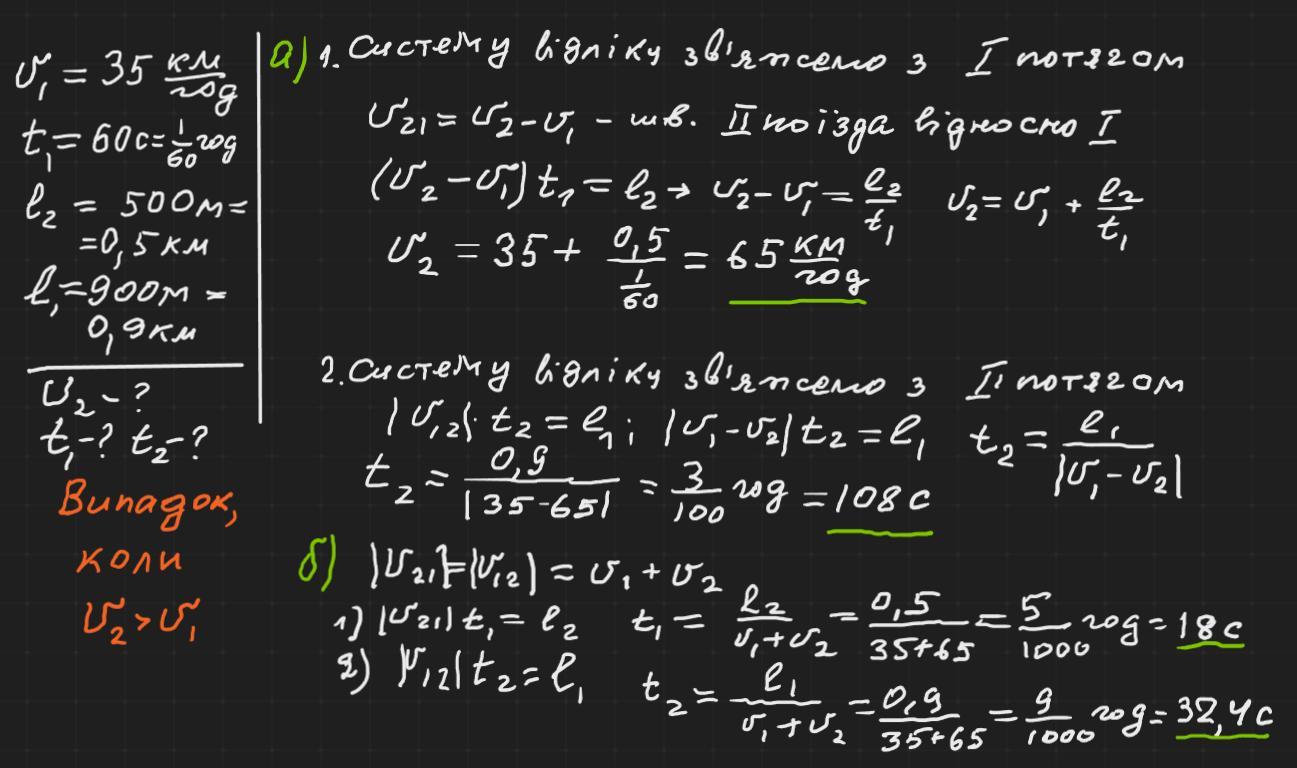 υ₁ = 35 км/год
t₁ = 60с = 1/60 год
l₂ = 500м =
= 0,5 км
l₁ = 900м =
0,9км
υ₂ - ?
t₁ - ? t₂ - ?
Випадок,
коли
υ₂ > υ₁
а) 1. Систему відліку зв'яжемо з I потягом
υ₂₁ = υ₂ - υ₁ - шв. II поїзда відносно I
(υ₂ - υ₁) t₁ = l₂ → υ₂ - υ₁ = l₂/t₁ υ₂ = υ₁ + l₂/t₁
υ₂ = 35 + 0,5/(1/60) = 65 км/год
2. Систему відліку зв'яжемо з II потягом
|υ₁₂| · t₂ = l₁; |υ₁ - υ₂| t₂ = l₁ t₂ = l₁/|υ₁ - υ₂|
t₂ = 0,9/|35-65| = 3/100 год = 108 с
б) |υ₂₁| = |υ₁₂| = υ₁ + υ₂
1) |υ₂₁| t₁ = l₂ t₁ = l₂/(υ₁+υ₂) = 0,5/(35+65) = 5/1000 год = 18 с
2) |υ₁₂| t₂ = l₁ t₂ = l₁/(υ₁+υ₂) = 0,9/(35+65) = 9/1000 год = 32,4 с